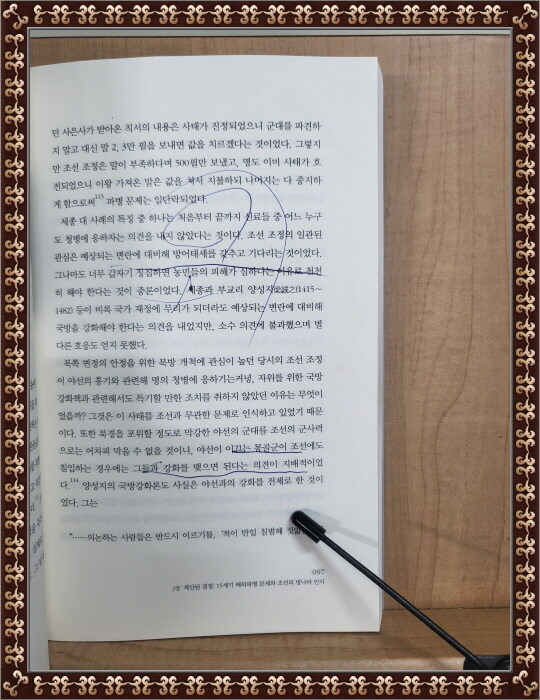 던 사은사가 받아온 칙서의 내용은 사태가 진정되었으니 군대를 파견하
지 말고 대신 말 2, 3만 필을 보내면 값을 치르겠다는 것이었다. 그렇지
만 조선 조정은 말이 부족하다며 500필만 보냈고, 명도 이미 사태가 호
전되었으니 이왕 가져온 말은 값을 쳐서 지불하되 나머지는 다 중지하
게 함으로써113 파병 문제는 일단락되었다.
세종 대 사례의 특징 중 하나는 처음부터 끝까지 신료들 중 어느 누구
도 청병에 응하자는 의견을 내지 않았다는 것이다. 조선 조정의 일관된
관심은 예상되는 변란에 대비해 방어태세를 갖추고 기다리는 것이었다.
그나마도 너무 갑자기 징집하면 농민들의 피해가 심하다는 이유로 천천
히 해야 한다는 것이 중론이었다. 세종과 부교리 양성지梁誠之(1415~
1482) 등이 비록 국가 재정에 무리가 되더라도 예상되는 변란에 대비해
국방을 강화해야 한다는 의견을 내었지만, 소수 의견에 불과했으며 별
다른 호응도 얻지 못했다.
북쪽 변경의 안정을 위한 북방 개척에 관심이 높던 당시의 조선 조정
이 야선의 흥기와 관련해 명의 청병에 응하기는커녕, 자위를 위한 국방
강화책과 관련해서도 특기할 만한 조치를 취하지 않았던 이유는 무엇이
었을까? 그것은 이 사태를 조선과 무관한 문제로 인식하고 있었기 때문
이다. 또한 북경을 포위할 정도로 막강한 야선의 군대를 조선의 군사력
으로는 어차피 막을 수 없을 것이니, 야선이 이끄는 몽골군이 조선에도
침입하는 경우에는 그들과 강화를 맺으면 된다는 의견이 지배적이었
다.114 양성지의 국방강화론도 사실은 야선과의 강화를 전제로 한 것이
었다. 그는
"……의논하는 사람들은 반드시 이르기를, '적이 만일 침범해
097
3장 계산된 결정: 15세기 해외파병 문제와 조선의 명나라 인식